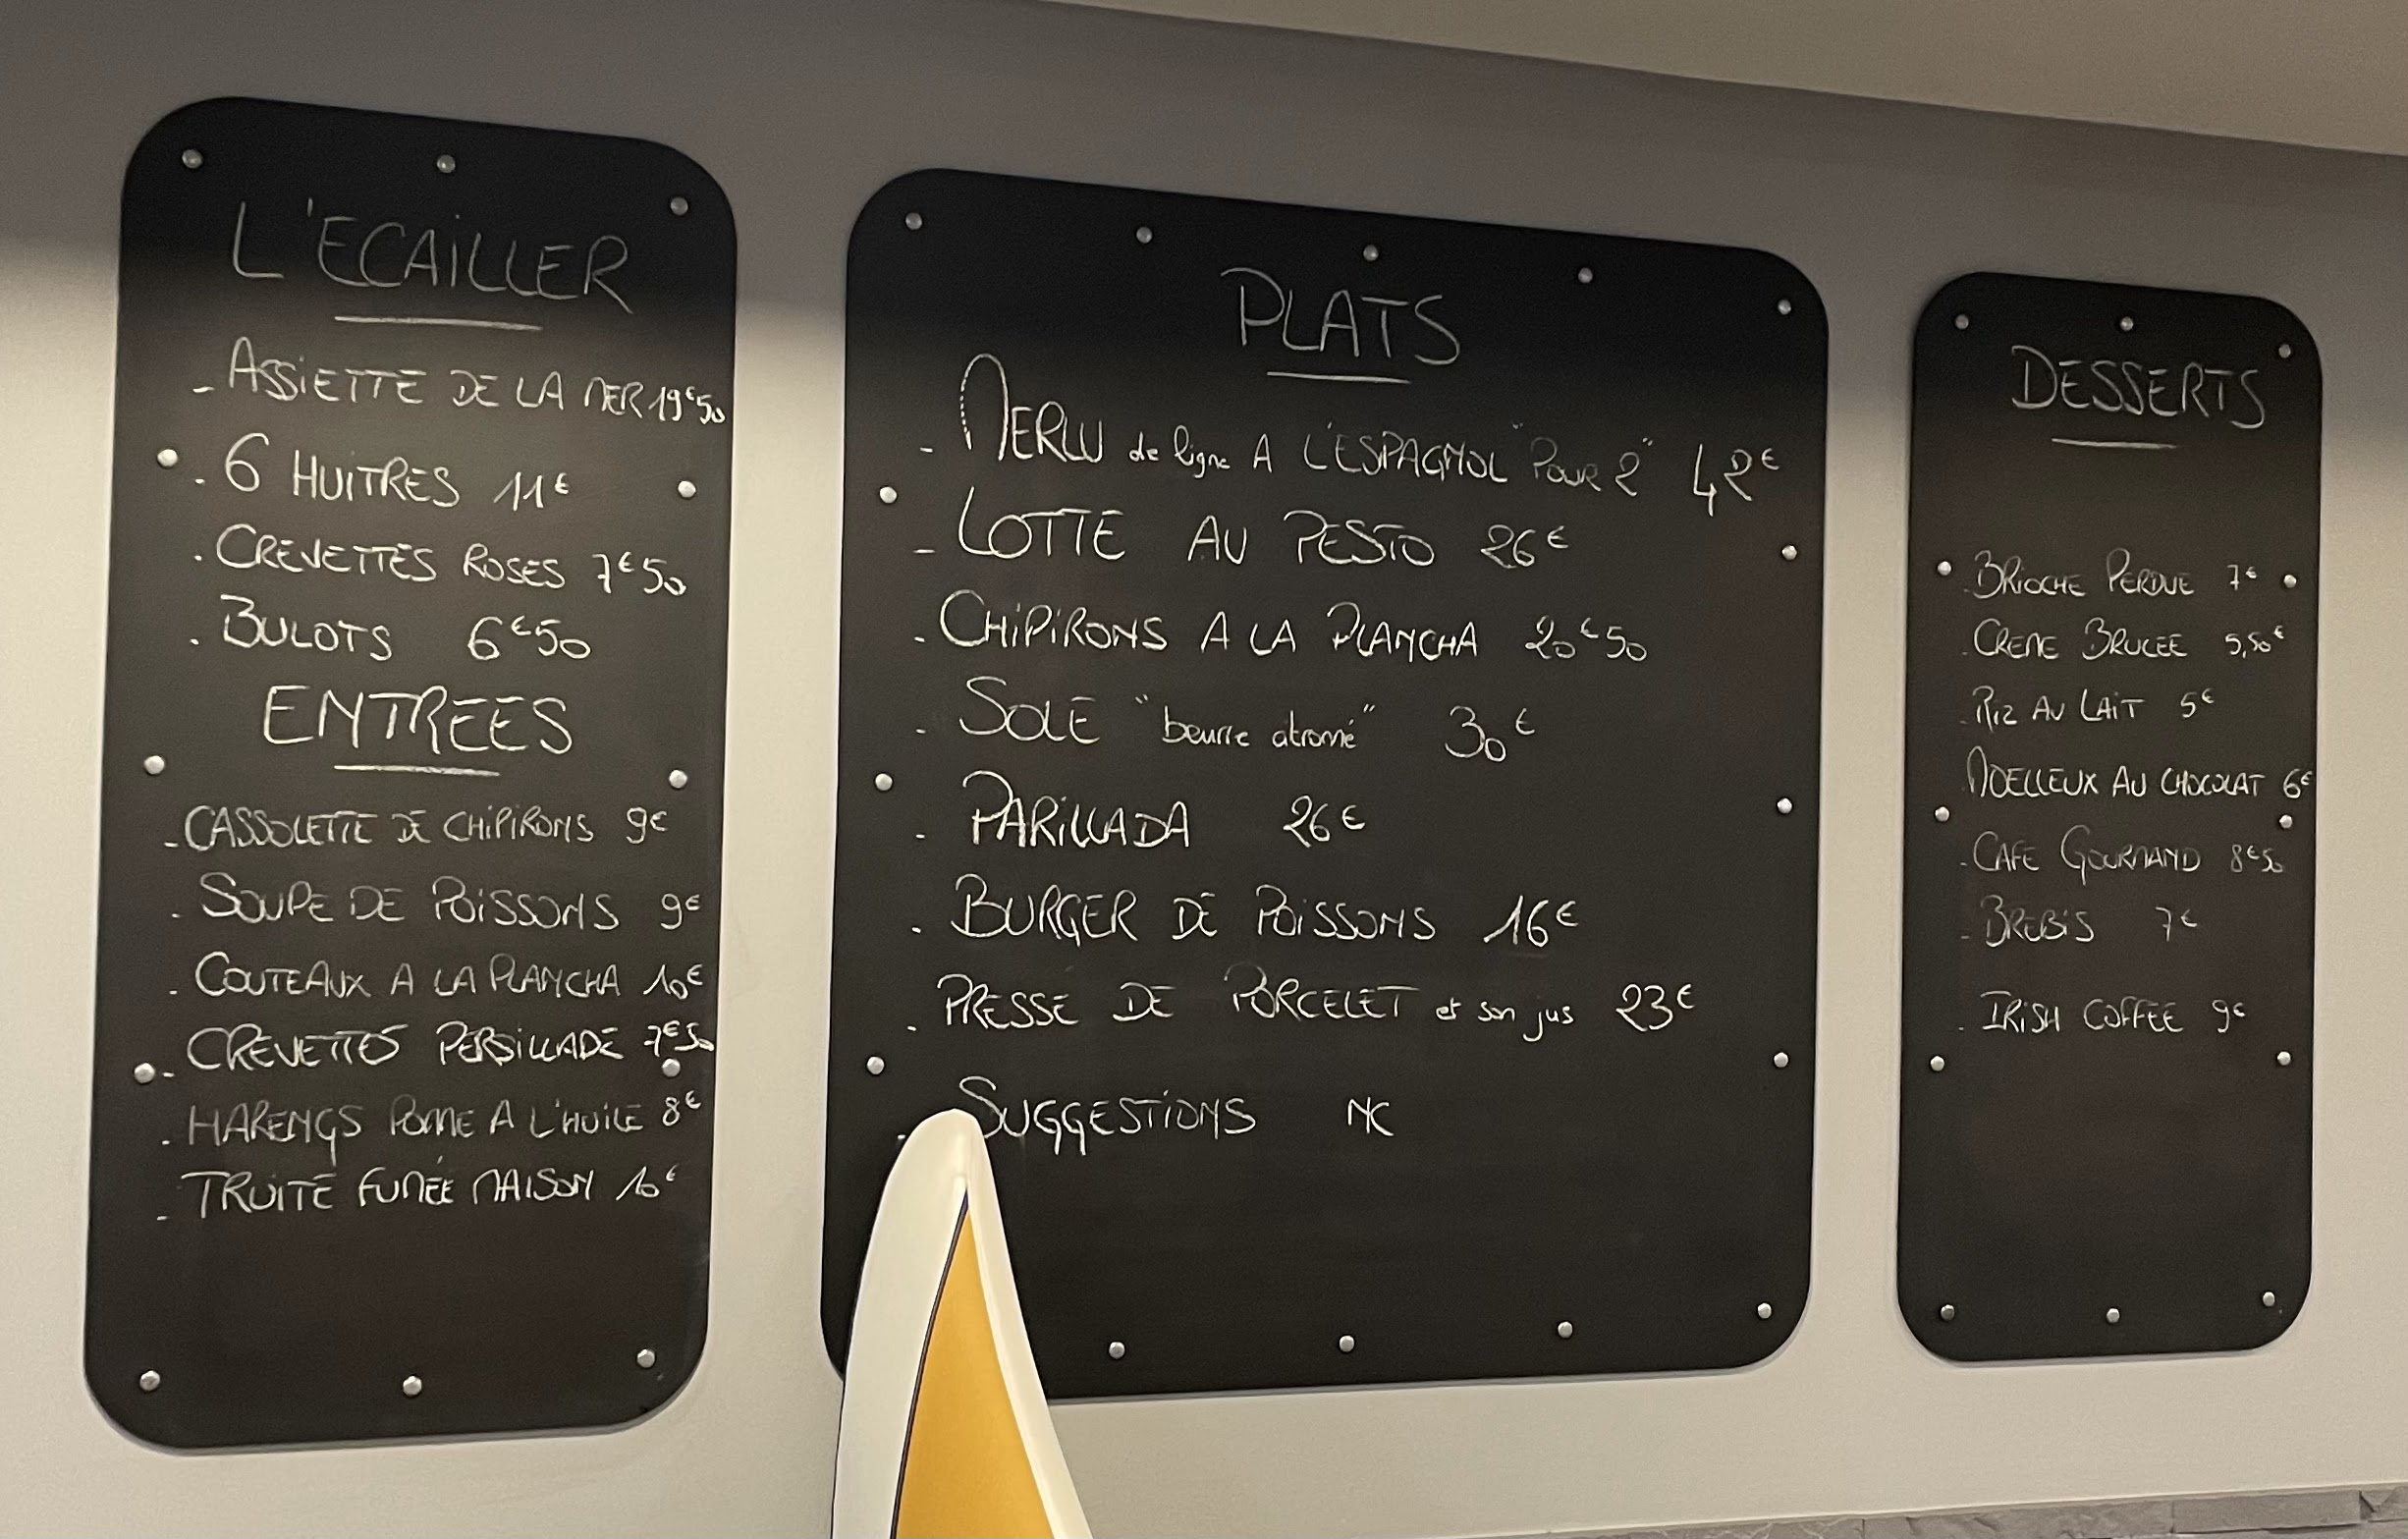 L'ECAILLER
- ASSIETTE DE LA MER 19€50
- 6 HUITRES 11€
- CREVETTES ROSES 7€50
- BULOTS 6€50
ENTREES
- CASSOLETTE DE CHIPIRONS 9€
- SOUPE DE POISSONS 9€
- COUTEAUX A LA PLANCHA 10€
- CREVETTES PERSILLADE 7€50
- HARENGS POMME A L'HUILE 8€
- TRUITE FUMÉE MAISON 10€
PLATS
- MERLU de ligne A L'ESPAGNOL "POUR 2" 42€
- LOTTE AU PESTO 26€
- CHIPIRONS A LA PLANCHA 20€50
- SOLE "beurre atromé" 30€
- PARILLADA 26€
- BURGER DE POISSONS 16€
- PRESSE DE PORCELET et son jus 23€
- SUGGESTIONS NC
DESSERTS
- BRIOCHE PERDUE 7€
- CREME BRULEE 5,50€
- RIZ AU LAIT 5€
MOELLEUX AU CHOCOLAT 6€
- CAFE GOURMAND 8€50
- BREBIS 7€
- IRISH COFFEE 9€